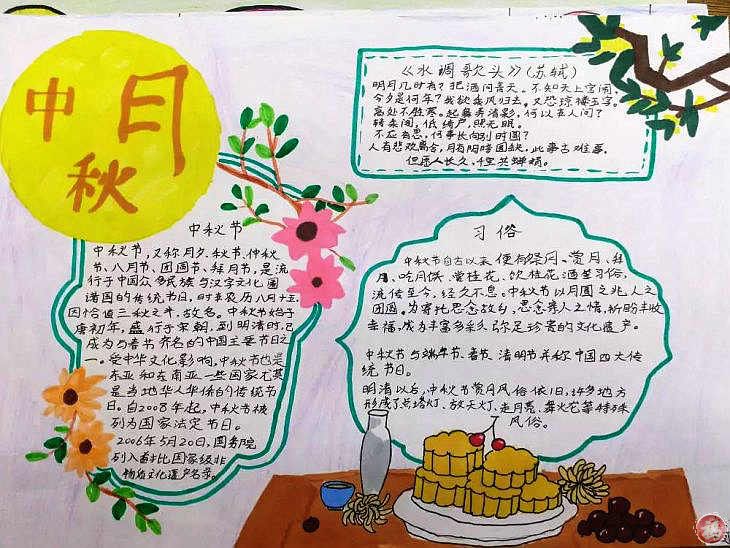 中
秋
月
《水调歌头》(苏轼)
明月几时有？把酒问青天。不知天上宫阙，
今夕是何年？我欲乘风归去。又恐琼楼玉宇。
高处不胜寒。起舞弄清影，何以去人间？
转朱阁，低绮户，照无眠。
不应有恨，何事长向别时圆？
人有悲欢离合，月有阴晴圆缺，此事古难事。
但愿人长久，千里共婵娟。
中秋节
中秋节，又称月夕、秋节、仲秋
节、八月节、团圆节、拜月节，是流
行于中国众多民族与汉字文化圈
诸国的传统节日，时在农历八月十五，
因恰值三秋之半，故名。中秋节始于
唐初年，盛行于宋朝，到明清时，已
成为与春节齐名的中国主要节日之
一。受中华文化影响，中秋节也是
东亚和东南亚一些国家尤其
是当地华人华侨的传统节
日。自2008年起，中秋节被
列为国家法定节日。
2006年5月20日，国务院
列入首批国家级非
物质文化遗产名录。
习俗
中秋节自古以来便有祭月、赏月、拜
月、吃月饼、赏桂花、饮桂花酒等习俗，
流传至今，经久不息。中秋节以月圆之兆人之
团圆。为寄托思念故乡，思念亲人之情，祈盼丰收
幸福，成为丰富多彩、弥足珍贵的文化遗产。
中秋节与端午节、春节、清明节并称中国四大传
统节日。
明清以后，中秋节赏月风俗依旧，许多地方
形成了点塔灯、放天灯、走月亮、舞火龙等特殊
风俗。